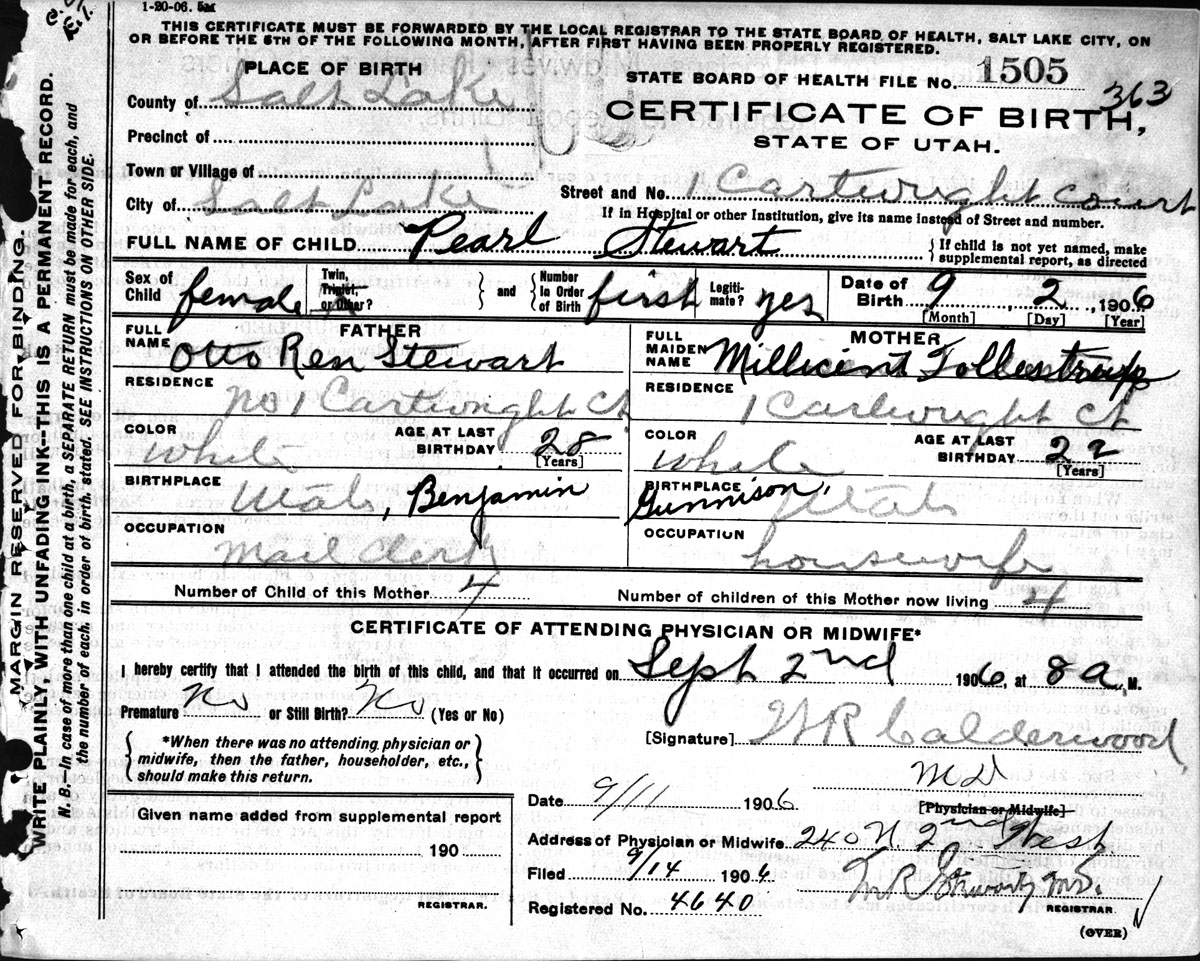 1-20-06. 5m
THIS CERTIFICATE MUST BE FORWARDED BY THE LOCAL REGISTRAR TO THE STATE BOARD OF HEALTH, SALT LAKE CITY, ON
OR BEFORE THE 5TH OF THE FOLLOWING MONTH, AFTER FIRST HAVING BEEN PROPERLY REGISTERED.
MARGIN RESERVED FOR BINDING.
WRITE PLAINLY, WITH UNFADING INK--THIS IS A PERMANENT RECORD.
N. B.--In case of more than one child at a birth, a SEPARATE RETURN must be made for each, and
the number of each, in order of birth, stated. SEE INSTRUCTIONS ON OTHER SIDE.
PLACE OF BIRTH
STATE BOARD OF HEALTH FILE No. 1505
363
County of Salt Lake
CERTIFICATE OF BIRTH,
Precinct of
STATE OF UTAH.
Town or Village of
City of Salt Lake
Street and No. 1 Cartwright Court
If in Hospital or other Institution, give its name instead of Street and number.
FULL NAME OF CHILD Pearl Stewart
{ If child is not yet named, make
supplemental report, as directed
Sex of Child female
Twin, Triplet, or Other? } and { Number in Order of Birth first
Legitimate? yes
Date of Birth 9 2, 1906
[Month] [Day] [Year]
FATHER
FULL NAME Otto Ren Stewart
RESIDENCE No 1 Cartwright Ct
COLOR White
AGE AT LAST BIRTHDAY 28
[Years]
BIRTHPLACE Utah, Benjamin
OCCUPATION Mail Clerk
MOTHER
FULL MAIDEN NAME Millicent Tollestrup
RESIDENCE 1 Cartwright Ct
COLOR White
AGE AT LAST BIRTHDAY 22
[Years]
BIRTHPLACE Gunnison, Utah
OCCUPATION housewife
Number of Child of this Mother 4
Number of children of this Mother now living 4
CERTIFICATE OF ATTENDING PHYSICIAN OR MIDWIFE*
I hereby certify that I attended the birth of this child, and that it occurred on Sept 2nd 1906, at 8 a. M.
Premature No or Still Birth? No (Yes or No)
{ *When there was no attending physician or
midwife, then the father, householder, etc.,
should make this return. }
[Signature] W R Calderwood
M D
[Physician or Midwife]
Date 9/11 1906
Address of Physician or Midwife 240 N 2nd West
Filed 9/14 1906
REGISTRAR.
Registered No. 4640
(OVER)
Given name added from supplemental report
190
REGISTRAR.